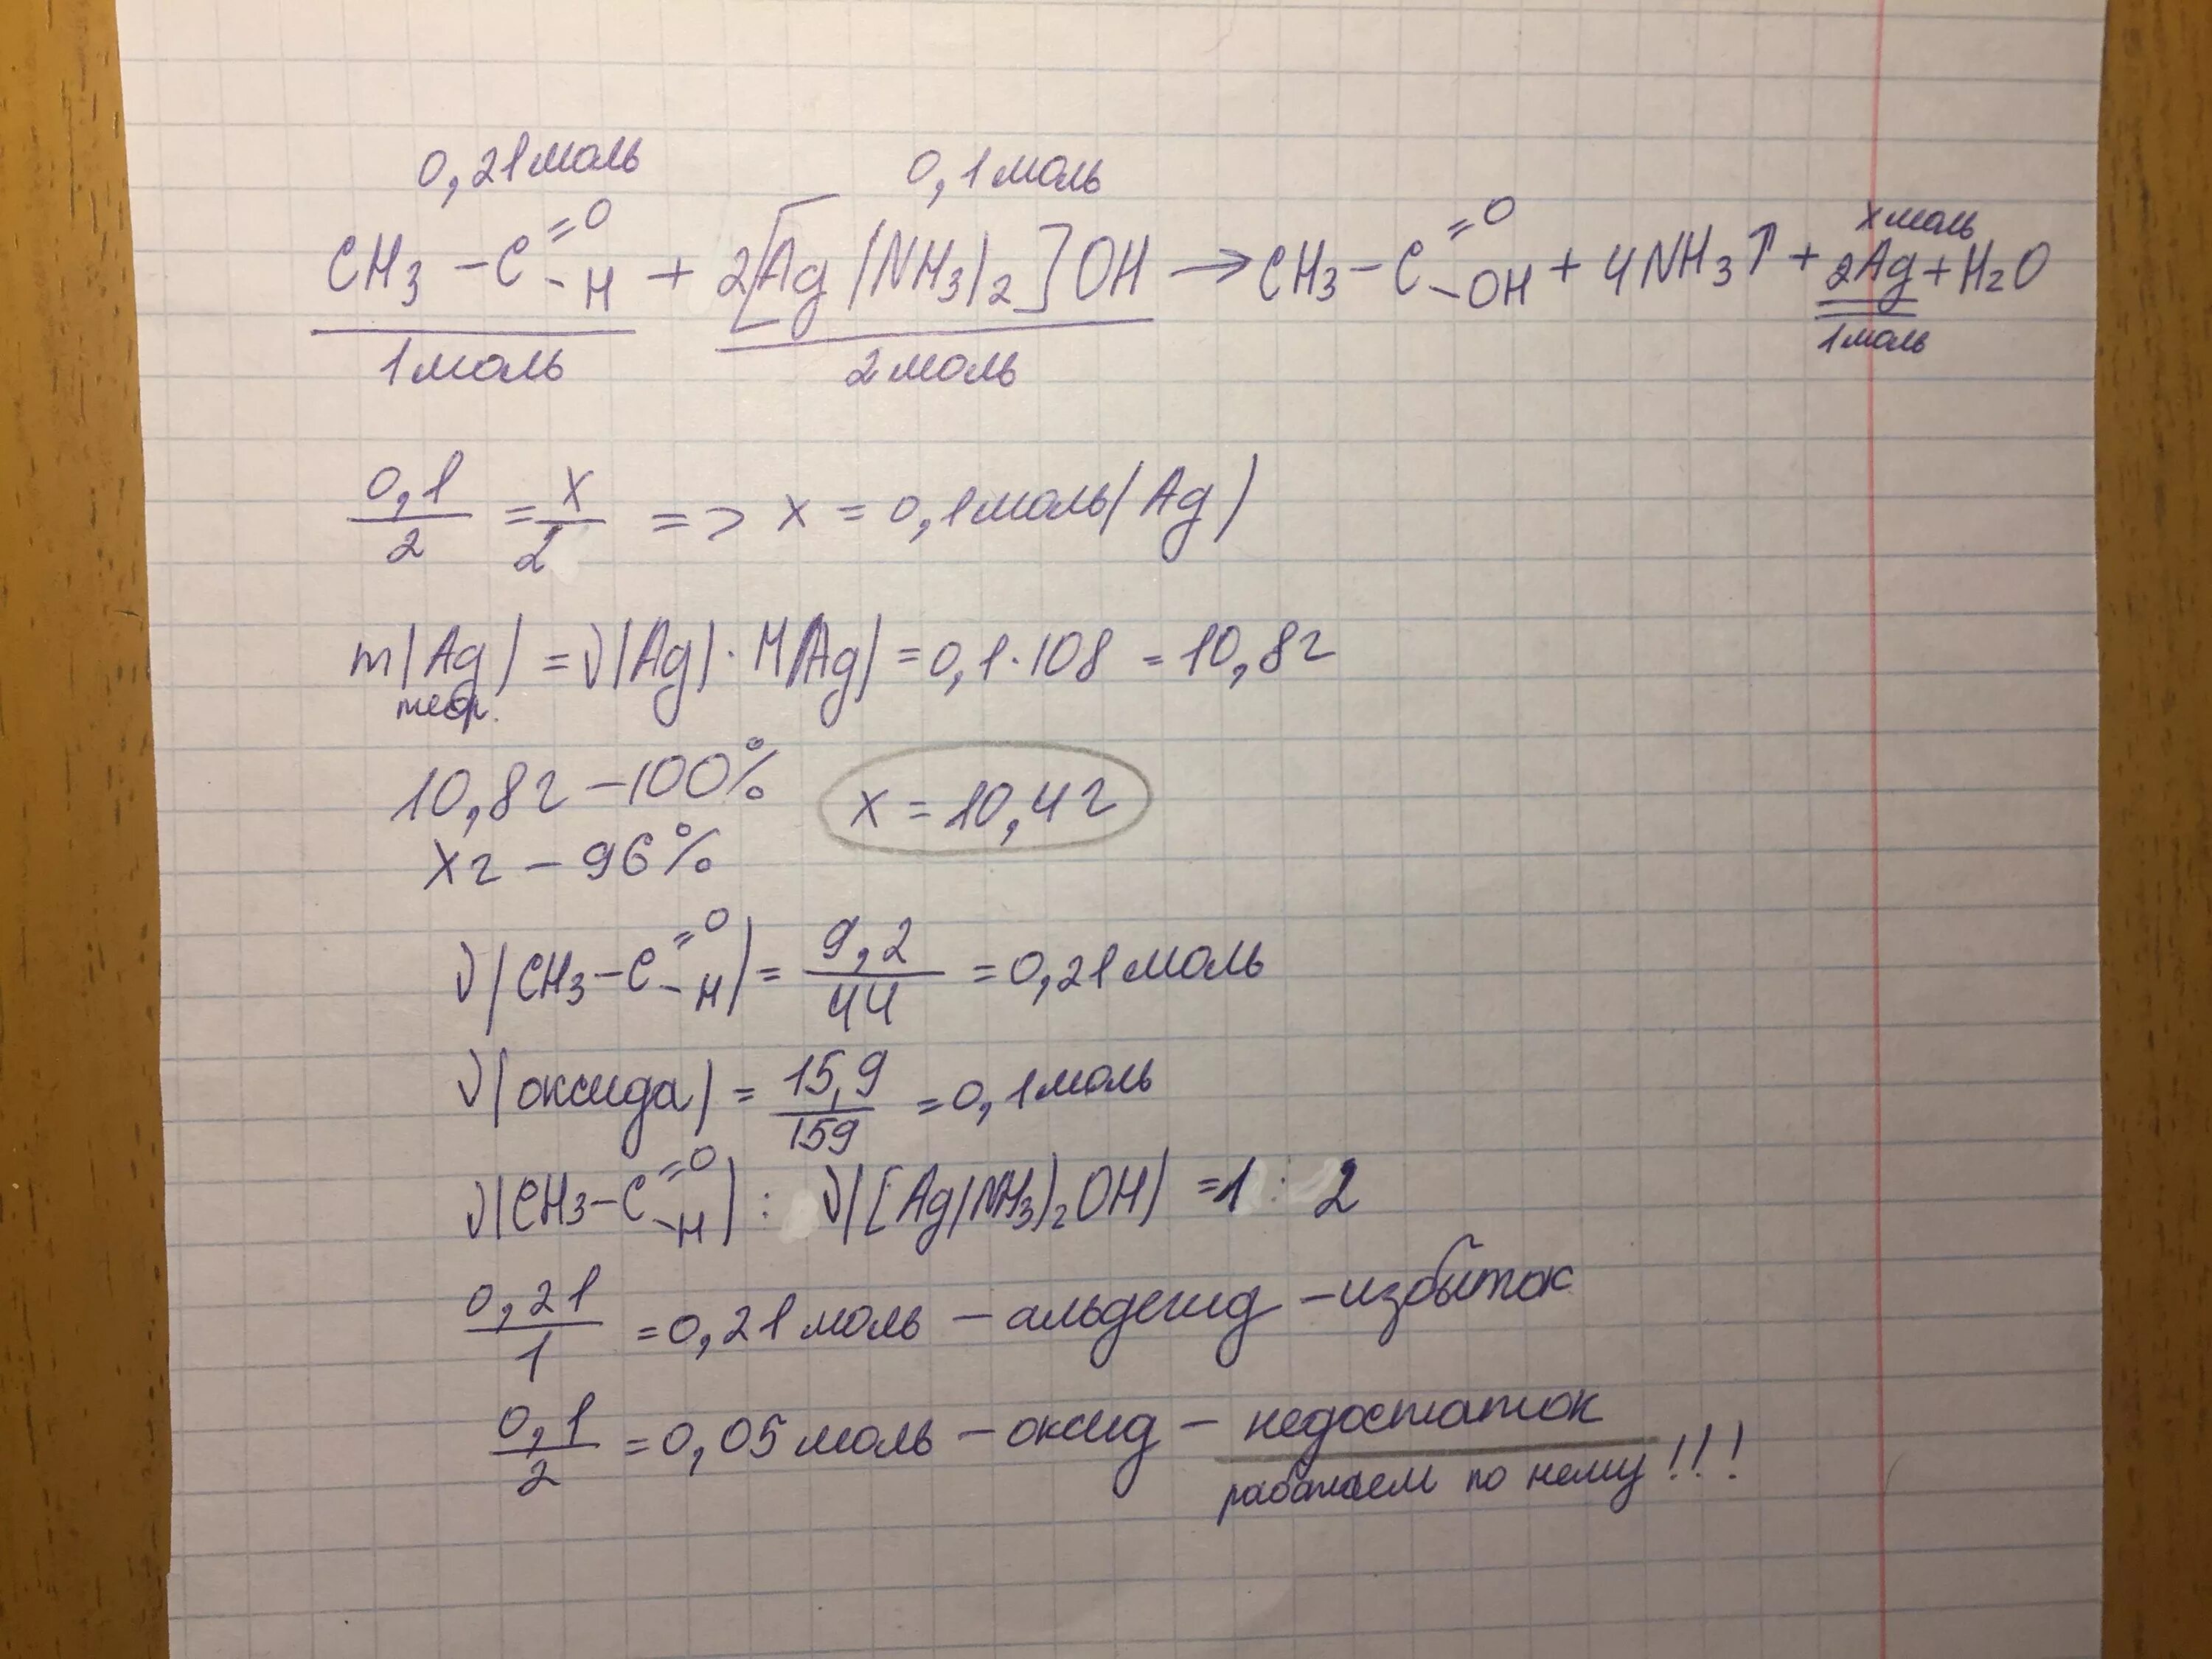 0,21моль 0,1моль
CH3-C=O-H + 2[Ag(NH3)2]OH → CH3-C=O-OH + 4NH3↑ + 2Ag + H2O
x моль
1моль 2моль 1моль
0,1/2 = x/2 => x = 0,1моль(Ag)
m(Ag) = ν(Ag)·M(Ag) = 0,1·108 = 10,8г
теор.
10,8г - 100% x = 10,4г
xг - 96%
ν(CH3-C=O-H) = 9,2/44 = 0,21моль
ν(оксида) = 15,9/159 = 0,1моль
ν(CH3-C=O-H) : ν([Ag(NH3)2OH) = 1 : 2
0,21/1 = 0,21моль - альдегид - избыток
0,1/2 = 0,05моль - оксид - недостаток
работаем по нему!!!